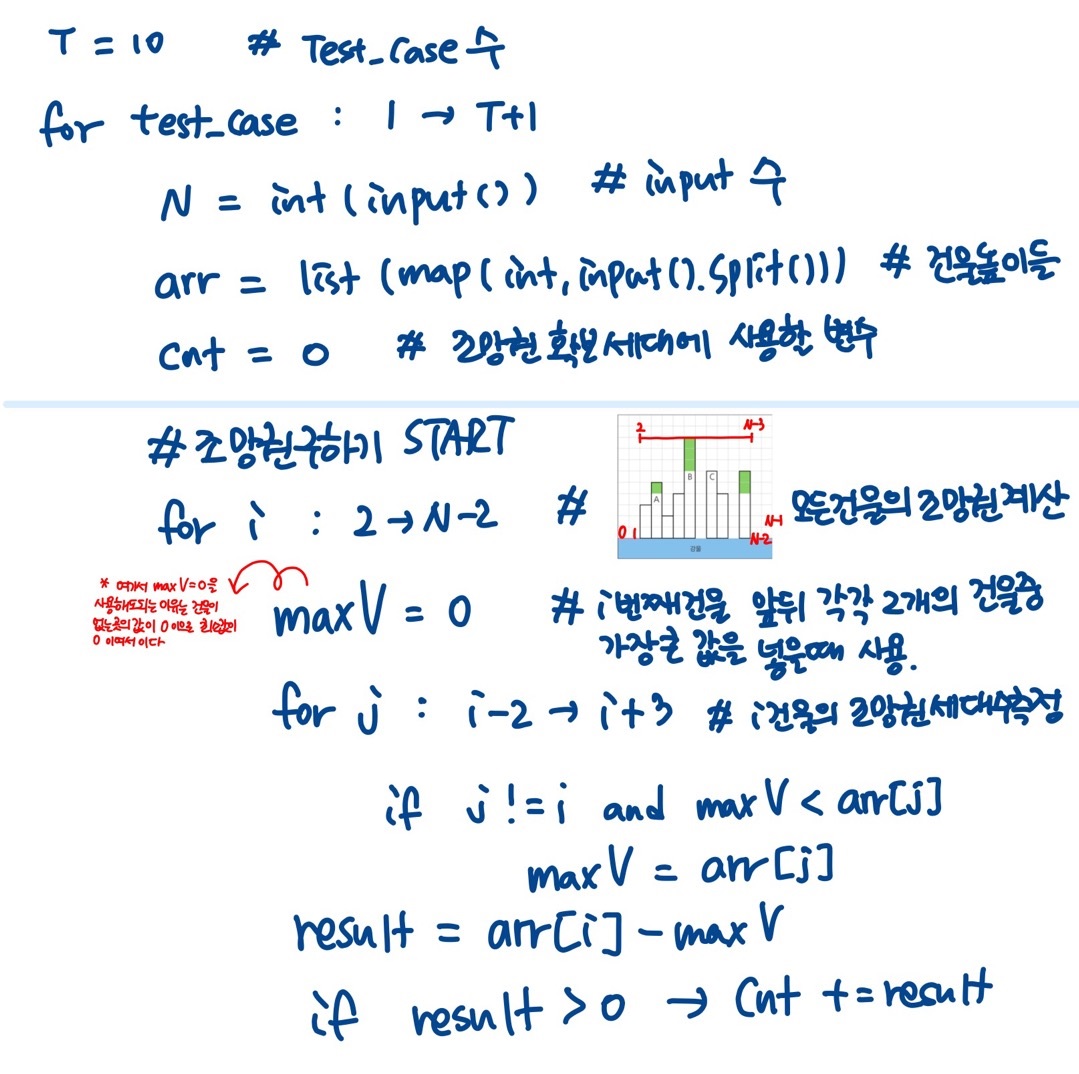 T = 10 # Test_Case 수
for test_case : 1 → T+1
N = int(input()) # input 수
arr = list(map(int, input().split())) # 건물높이들
cnt = 0 # 조망권 확보 세대에 사용할 변수
# 조망권구하기 START
2 N-3
A B C
0 1 N-2 N-1
강물
for i : 2 → N-2 # 모든건물의 조망권계산
* 여기서 maxV=0을
사용해도되는 이유는 건물이
없는곳의 값이 0 이므로 최소값이
0 이여서 이다
maxV = 0 # i번째건물 앞뒤 각각 2개의 건물중
가장큰 값을 넣을때 사용.
for j : i-2 → i+3 # i건물의 조망권세대수측정
if j != i and maxV < arr[j]
maxV = arr[j]
result = arr[i] - maxV
if result > 0 → Cnt += result